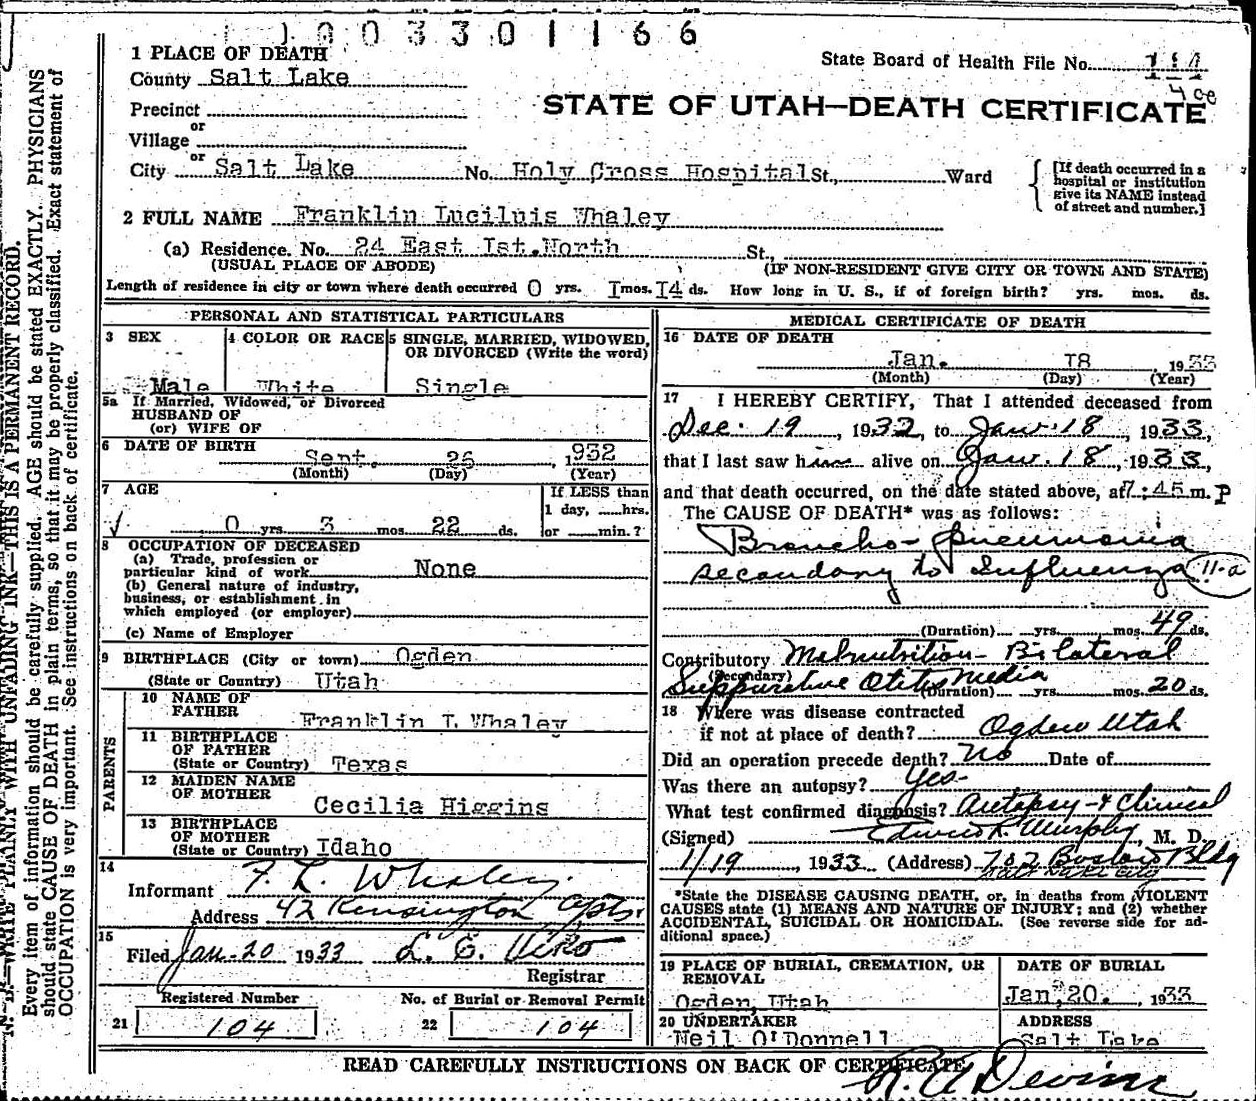 1003301166
1 PLACE OF DEATH
State Board of Health File No. 114
County Salt Lake
400
STATE OF UTAH—DEATH CERTIFICATE
Precinct
or
Village
or
City Salt Lake No. Holy Cross Hospital St., Ward
[If death occurred in a
hospital or institution
give its NAME instead
of street and number.]
2 FULL NAME Franklin Luciluis Whaley
(a) Residence. No. 24 East Ist.North St.,
(USUAL PLACE OF ABODE) (IF NON-RESIDENT GIVE CITY OR TOWN AND STATE)
Length of residence in city or town where death occurred 0 yrs. I mos. I4 ds. How long in U. S., if of foreign birth? yrs. mos. ds.
PERSONAL AND STATISTICAL PARTICULARS
3 SEX
Male
4 COLOR OR RACE
White
5 SINGLE, MARRIED, WIDOWED,
OR DIVORCED (Write the word)
Single
5a If Married, Widowed, or Divorced
HUSBAND OF
(or) WIFE OF
6 DATE OF BIRTH
Sept. 26, 1932
(Month) (Day) (Year)
7 AGE
0 yrs. 3 mos. 22 ds.
If LESS than
1 day, hrs.
or min.?
8 OCCUPATION OF DECEASED
(a) Trade, profession or
particular kind of work None
(b) General nature of industry,
business, or establishment in
which employed (or employer)
(c) Name of Employer
9 BIRTHPLACE (City or town) Ogden
(State or Country) Utah
PARENTS
10 NAME OF
FATHER Franklin L Whaley
11 BIRTHPLACE
OF FATHER
(State or Country) Texas
12 MAIDEN NAME
OF MOTHER
Cecilia Higgins
13 BIRTHPLACE
OF MOTHER
(State or Country) Idaho
14
Informant F. L. Whaley.
Address 42 Kensington Apts.
15
Filed Jan. 20 1933 L. E. Viko
Registrar
Registered Number
21 104
No. of Burial or Removal Permit
22 104
MEDICAL CERTIFICATE OF DEATH
16 DATE OF DEATH
Jan. I8 1933
(Month) (Day) (Year)
17 I HEREBY CERTIFY, That I attended deceased from
Dec. 19, 1932, to Jan. 18, 1933,
that I last saw him alive on Jan. 18, 1933,
and that death occurred, on the date stated above, at 7:45 m. P
The CAUSE OF DEATH* was as follows:
Broncho-pneumonia
secondary to Influenza 11-a
(Duration) yrs. mos. 49 ds.
Contributory Malnutrition - Bilateral
(Secondary)
Suppurative Otitis Media
(Duration) yrs. mos. 20 ds.
18 Where was disease contracted
if not at place of death? Ogden Utah
Did an operation precede death? No Date of
Was there an autopsy? Yes-
What test confirmed diagnosis? Autopsy + Clinical
(Signed) Edwin R. Murphy, M. D.
1/19, 1933 (Address) 702 Boston Bldg
Salt Lake City
*State the DISEASE CAUSING DEATH, or, in deaths from VIOLENT
CAUSES state (1) MEANS AND NATURE OF INJURY; and (2) whether
ACCIDENTAL, SUICIDAL OR HOMICIDAL. (See reverse side for ad-
ditional space.)
19 PLACE OF BURIAL, CREMATION, OR
REMOVAL
Ogden, Utah
DATE OF BURIAL
Jan. 20., 1933
20 UNDERTAKER
Neil O'Donnell
ADDRESS
Salt Lake
READ CAREFULLY INSTRUCTIONS ON BACK OF CERTIFICATE
R. W. Devine
N. B.—WRITE PLAINLY WITH UNFADING INK—THIS IS A PERMANENT RECORD.
Every item of information should be carefully supplied. AGE should be stated EXACTLY. PHYSICIANS
should state CAUSE OF DEATH in plain terms, so that it may be properly classified. Exact statement of
OCCUPATION is very important. See instructions on back of certificate.